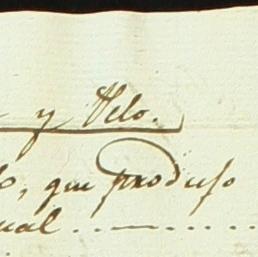 y Velo.
lo, que produjo
ual